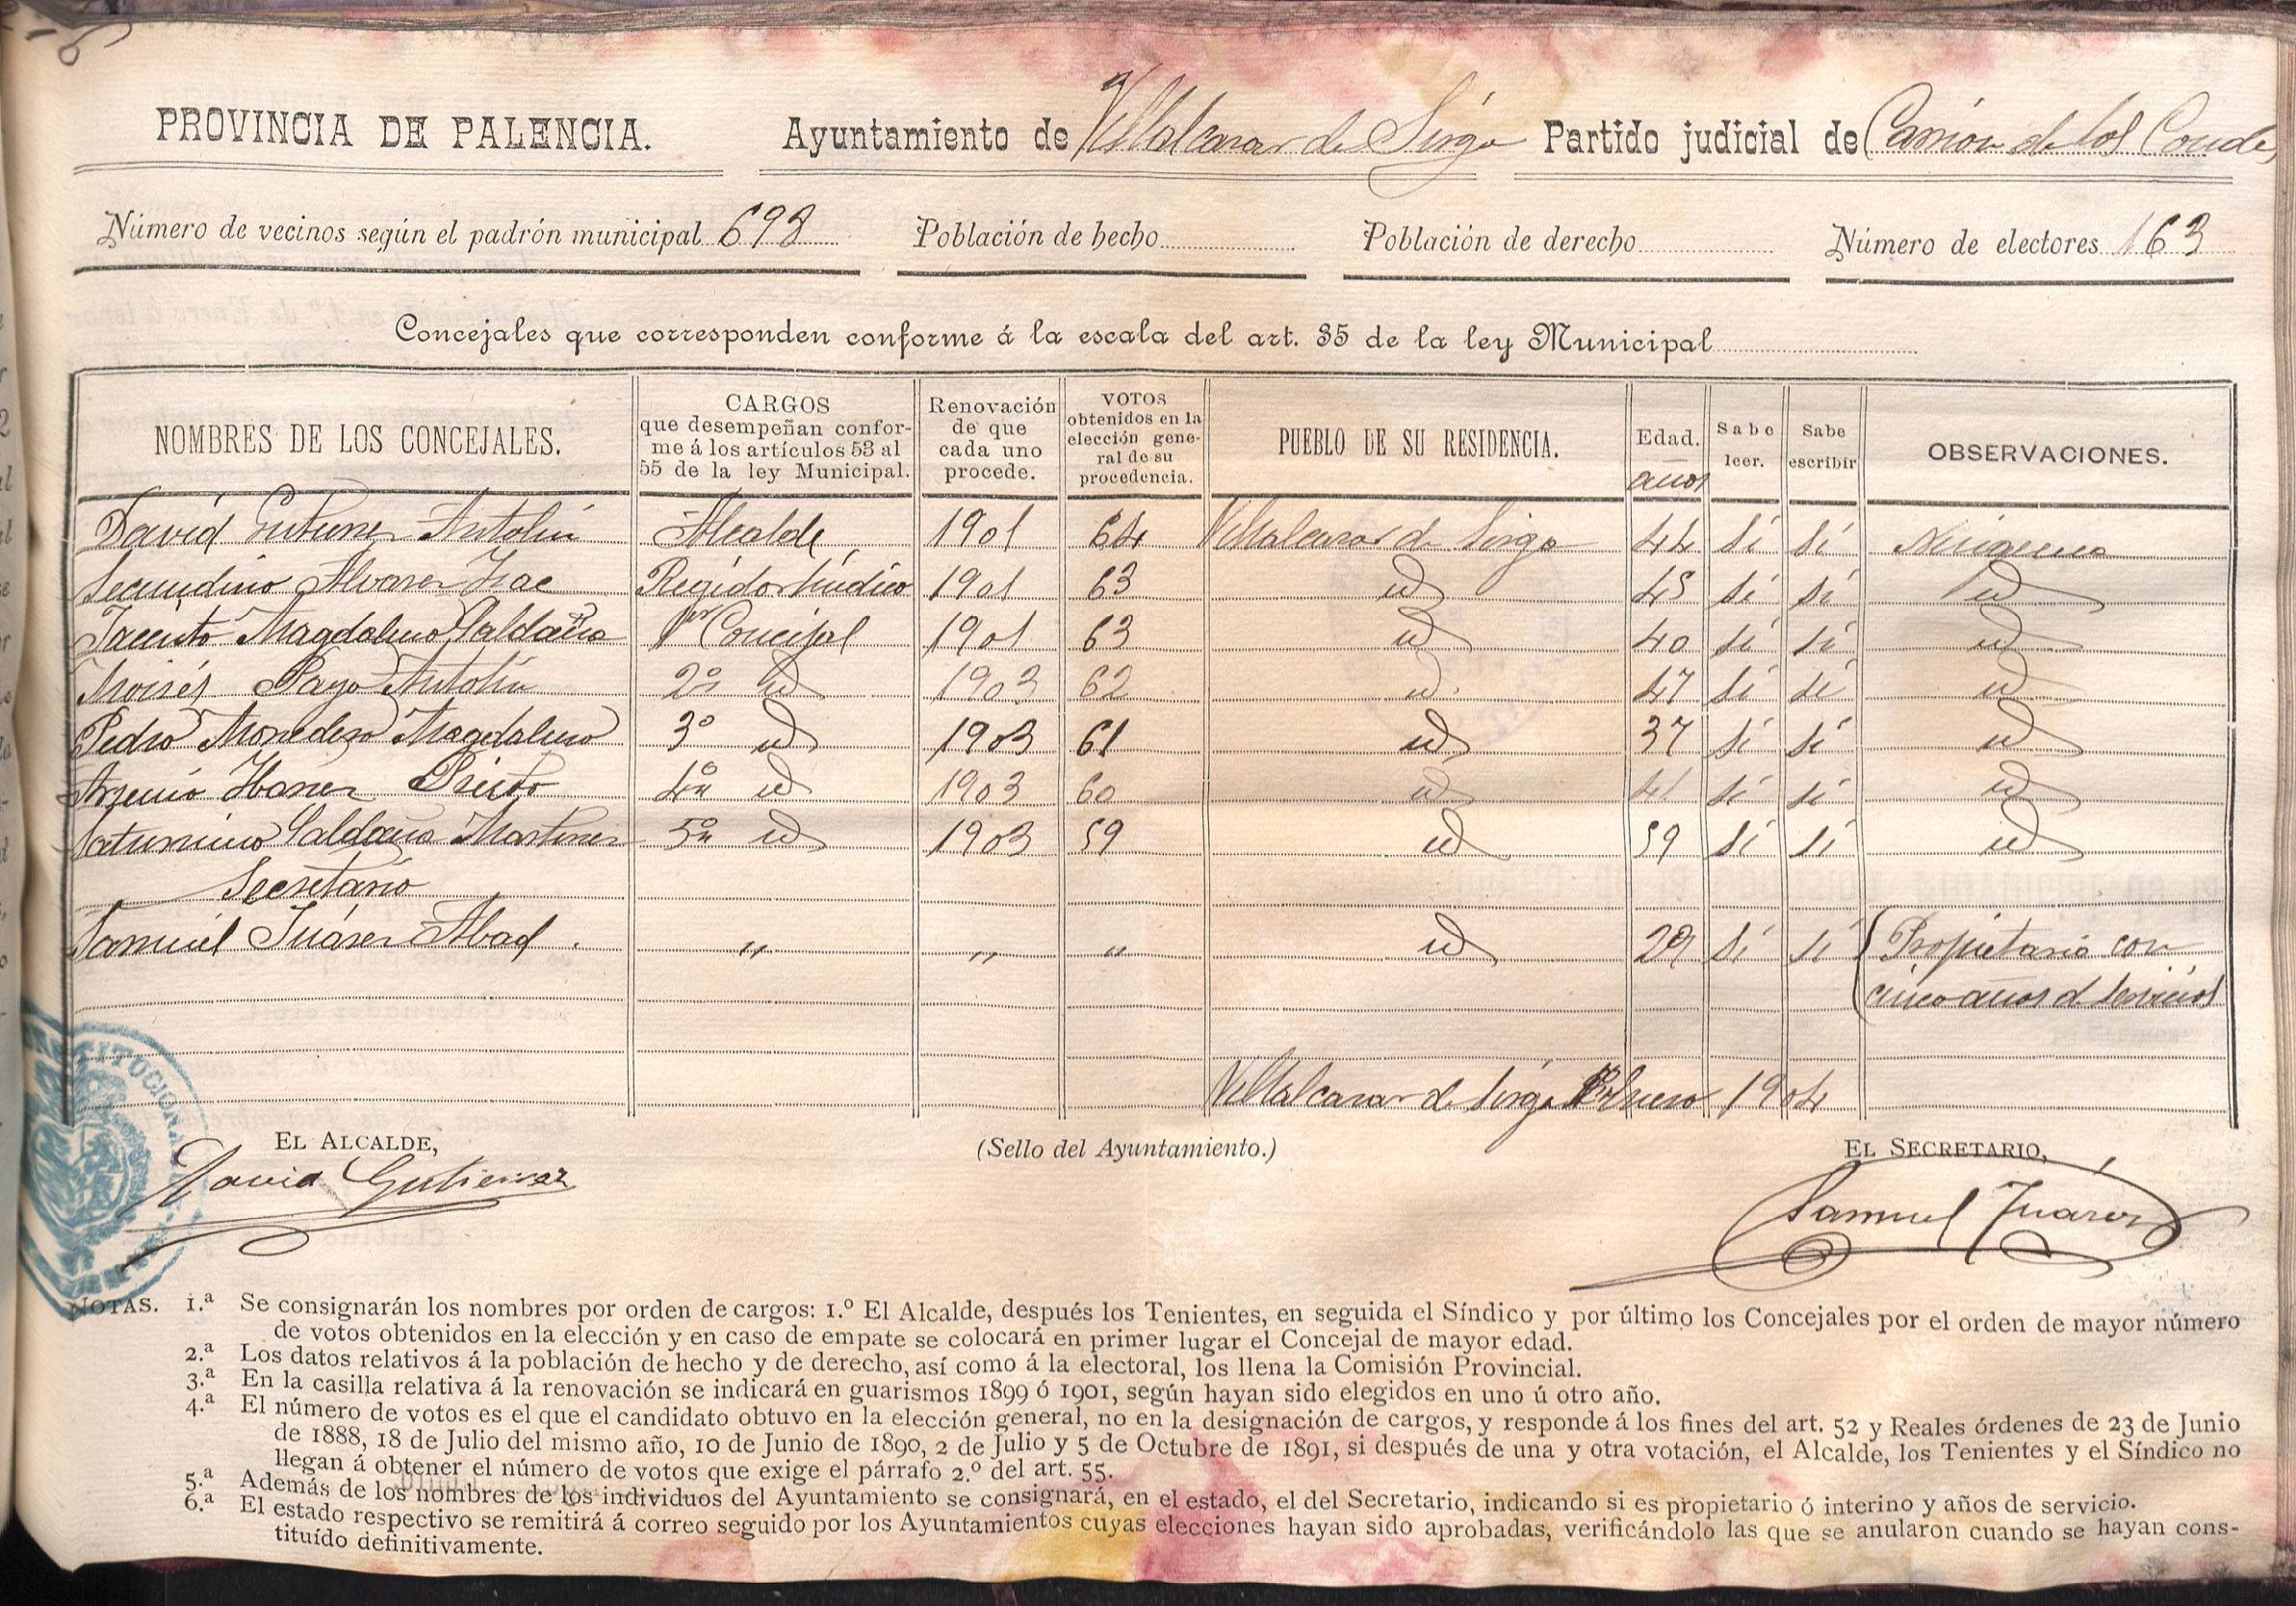 PROVINCIA DE PALENCIA. Ayuntamiento de Villalcazar de Sirga Partido judicial de Carrión de los Condes
Número de vecinos según el padrón municipal 698 Población de hecho Población de derecho Número de electores 163
Concejales que corresponden conforme á la escala del art. 35 de la ley Municipal
NOMBRES DE LOS CONCEJALES. CARGOS que desempeñan conforme á los artículos 53 al 55 de la ley Municipal. Renovación de que cada uno procede. VOTOS obtenidos en la elección general de su procedencia. PUEBLO DE SU RESIDENCIA. Edad. años Sabe leer. Sabe escribir OBSERVACIONES.
David Gutierrez Antolín Alcalde 1901 64 Villalcazar de Sirga 44 Sí Sí Ninguna
Secundino Alvarez Regidor Síndico 1901 63 id 45 Sí Sí id
Jacinto Magdaleno Saldaña 1er Concejal 1901 63 id 40 Sí Sí id
Moisés Payo Antolín 2º id 1903 62 id. 47 Sí Sí id
Pedro Monedero Magdaleno 3º id 1903 61 id 37 Sí Sí id
Arsenio Ibañez Prieto 4º id 1903 60 id 41 Sí Sí id
Saturnino Saldaña Martinez 5º id 1903 59 id 59 Sí Sí id
Secretario
Samuel Juárez Abad. " " " id 29 Sí Sí Propietario con
cinco años d servicios
Villalcazar de Sirga Febrero 1904
EL ALCALDE, (Sello del Ayuntamiento.) EL SECRETARIO,
David Gutierrez Samuel Juárez
NOTAS. 1.ª Se consignarán los nombres por orden de cargos: 1.º El Alcalde, después los Tenientes, en seguida el Síndico y por último los Concejales por el orden de mayor número
de votos obtenidos en la elección y en caso de empate se colocará en primer lugar el Concejal de mayor edad.
2.ª Los datos relativos á la población de hecho y de derecho, así como á la electoral, los llena la Comisión Provincial.
3.ª En la casilla relativa á la renovación se indicará en guarismos 1899 ó 1901, según hayan sido elegidos en uno ú otro año.
4.ª El número de votos es el que el candidato obtuvo en la elección general, no en la designación de cargos, y responde á los fines del art. 52 y Reales órdenes de 23 de Junio
de 1888, 18 de Julio del mismo año, 10 de Junio de 1890, 2 de Julio y 5 de Octubre de 1891, si después de una y otra votación, el Alcalde, los Tenientes y el Síndico no
llegan á obtener el número de votos que exige el párrafo 2.º del art. 55.
5.ª Además de los nombres de los individuos del Ayuntamiento se consignará, en el estado, el del Secretario, indicando si es propietario ó interino y años de servicio.
6.ª El estado respectivo se remitirá á correo seguido por los Ayuntamientos cuyas elecciones hayan sido aprobadas, verificándolo las que se anularon cuando se hayan cons-
tituído definitivamente.